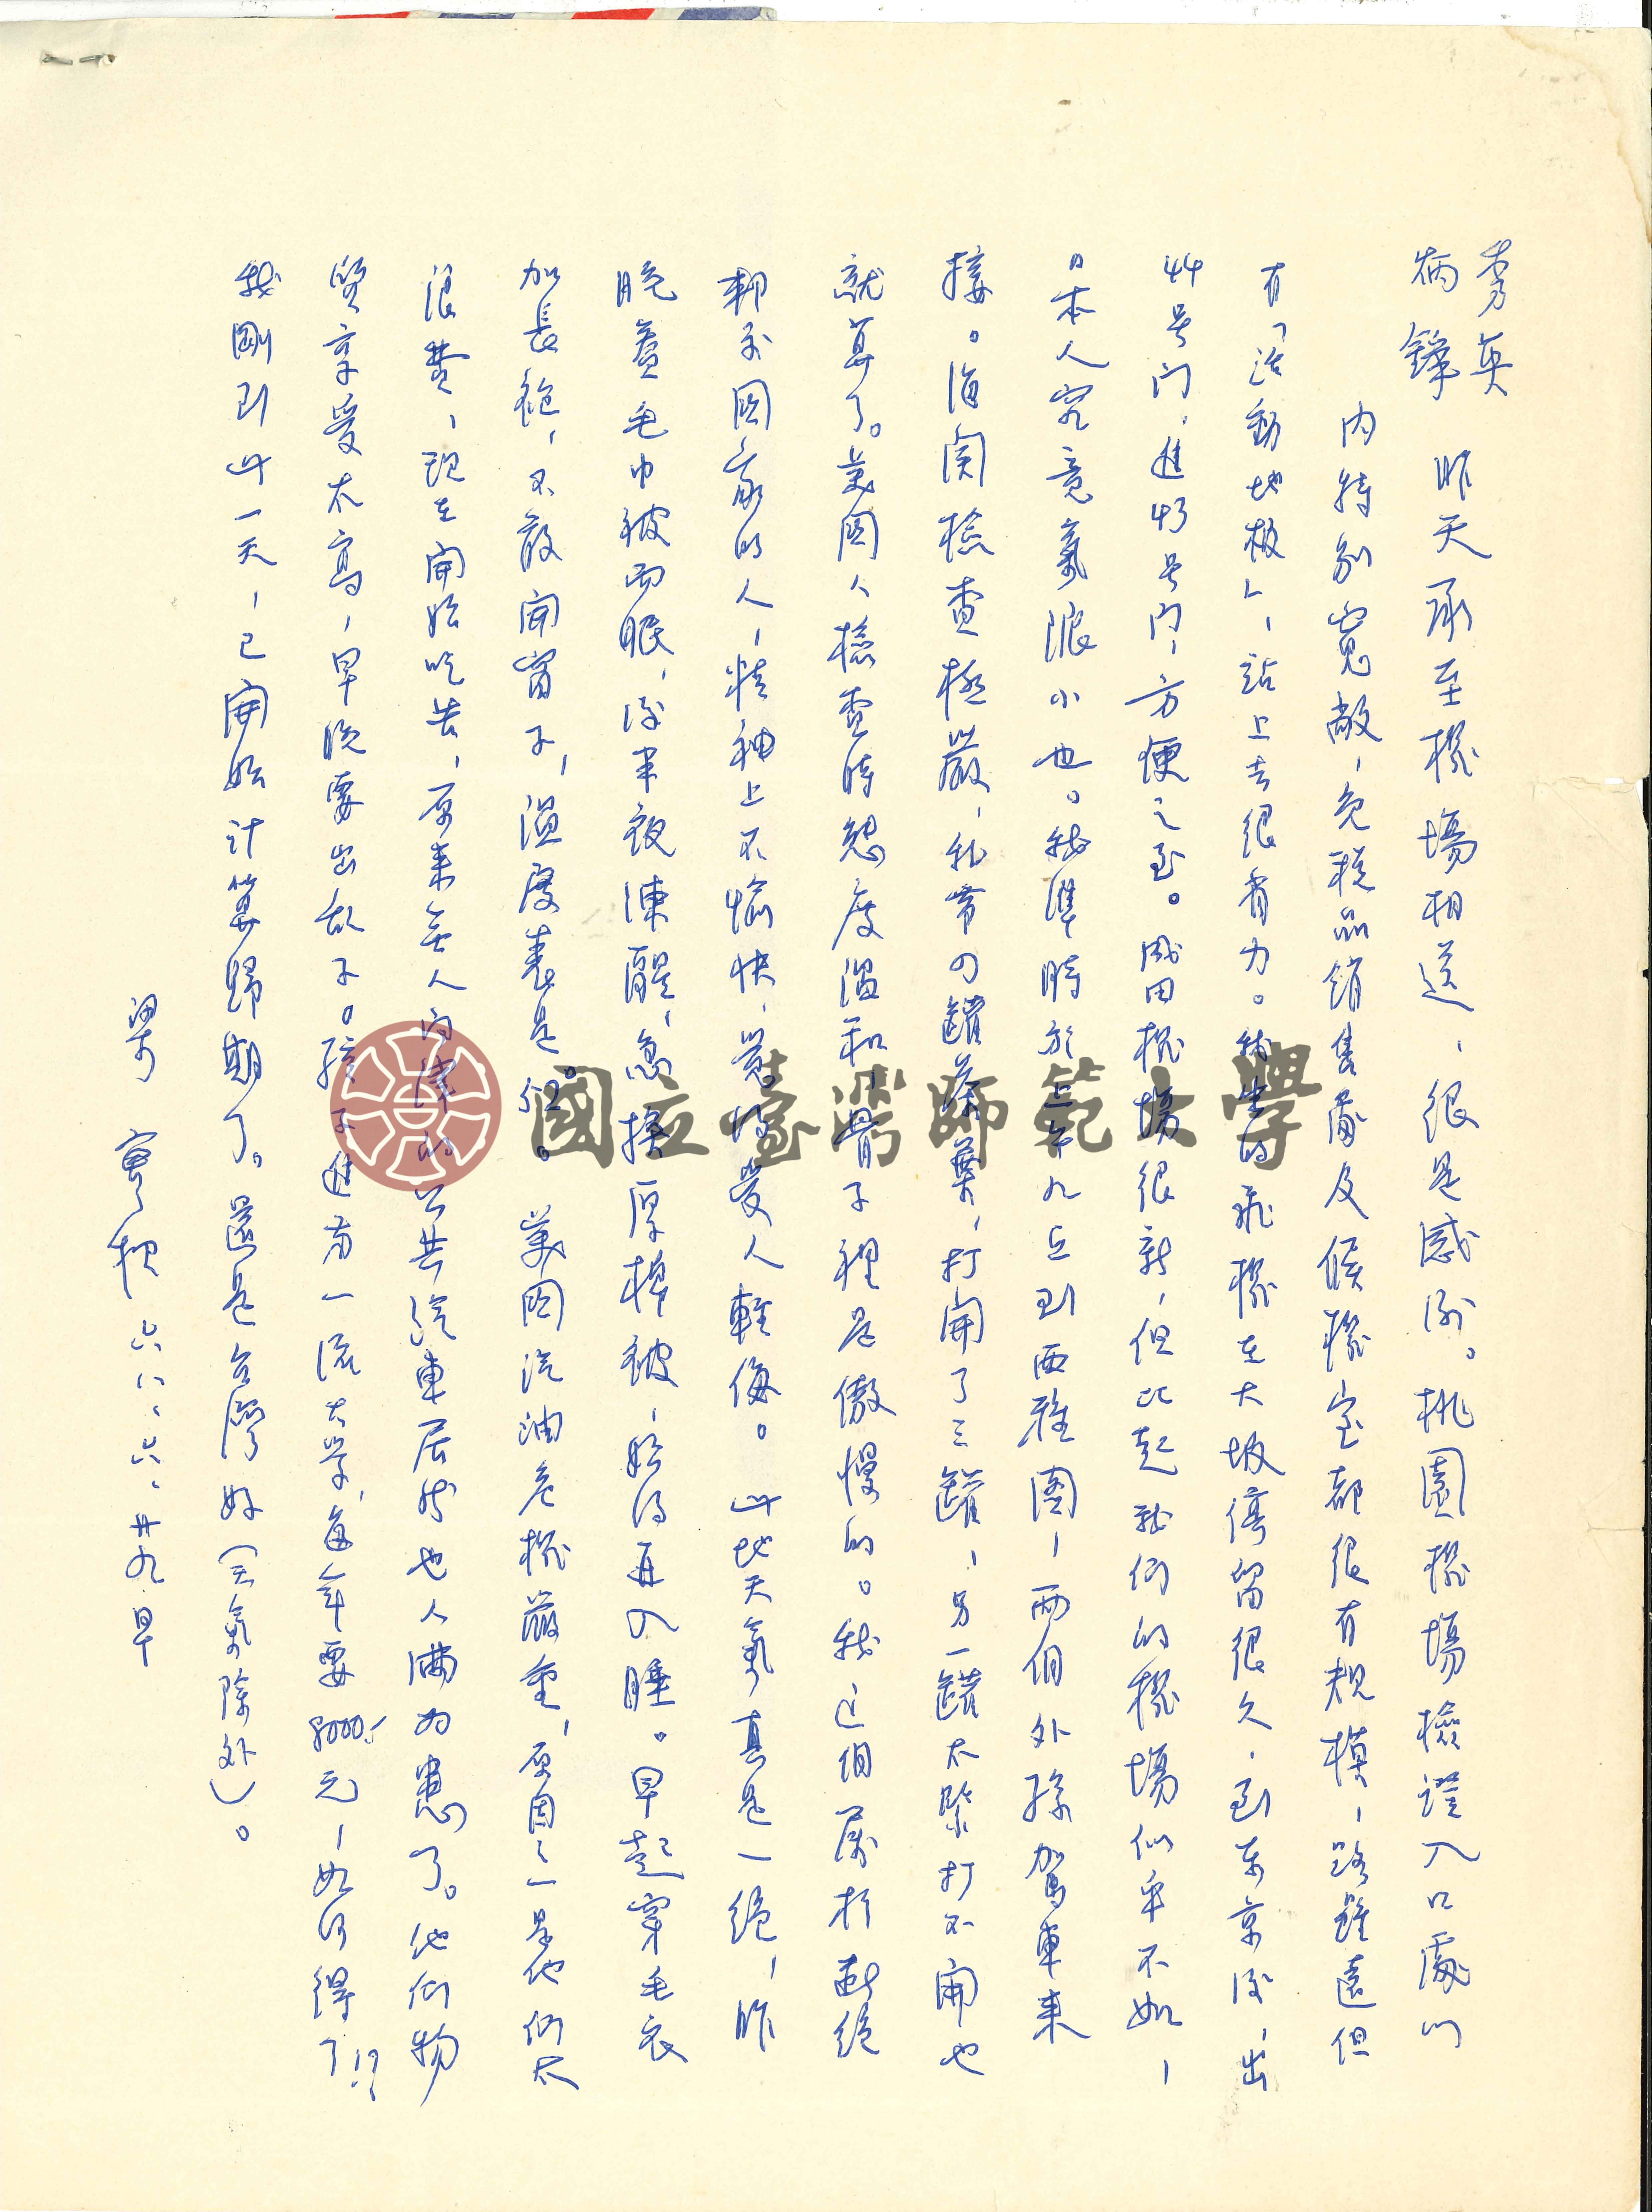 秀英
炳鋒　昨天承至機場相送，很是感谢。桃園機場檢證入口處以
内特别寬敞，免稅品銷售處及候機室都很有規模，路雖遠但
有「活動地板」，站上去很省力。我坐的飛機在大坂停留很久，到东京後，出
44号门，進43号门，方便之至。成田機場很新，但比起我们的機場似乎不如，
日本人究竟氣限小也。我準時於上午九点到西雅圖，兩個外孫駕車来
接。海関檢查極嚴，私带四罐茶葉，打開了三罐，另一罐太緊打不開也
就算了。美國人檢查時態度温和，骨子裡是傲慢的。我这個属於断绝
邦交國家的人，精神上不愉快，覺得受人輕侮。此地天氣真是一絕，昨
晚蓋毛巾被而眠，後半夜凍醒，急換厚棉被，始得再入睡。早起穿毛衣
加長袍，不敢開窗子，温度表是52°。美國汽油危機嚴重，原因之一是他们太
浪費，現在開始吃苦，原来無人问津的公共汽車居然也人满为患了。他们物
質享受太高，早晚要出乱子。孩子進第一流大学，每年要8000.-元，如何得了!!?
我剛到此一天，已開始計算歸期了。還是台灣好（天氣除外）。
梁實秋 六八、六、廿九早
國立臺灣師範大學